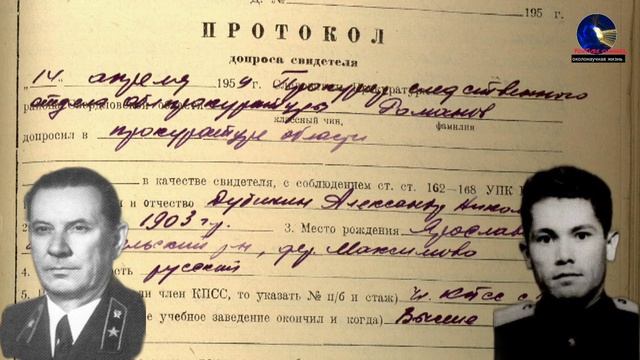 195 г.
околонаучная жизнь
ПРОТОКОЛ
допроса свидетеля
„14" апреля 1959 г. Прокурор следственного
отдела обл. прокуратуры Романов
классный чин, фамилия
допросил в прокуратуре области
в качестве свидетеля, с соблюдением ст. ст. 162—168 УПК
и отчество Дубинин Александр
1903 г. 3. Место рождения Ярослав
р-н, дер. Максимово
4. ость русский
5. ли член КПСС, то указать № п/б и стаж) чл. КПСС с
ое учебное заведение окончил и когда) Высше